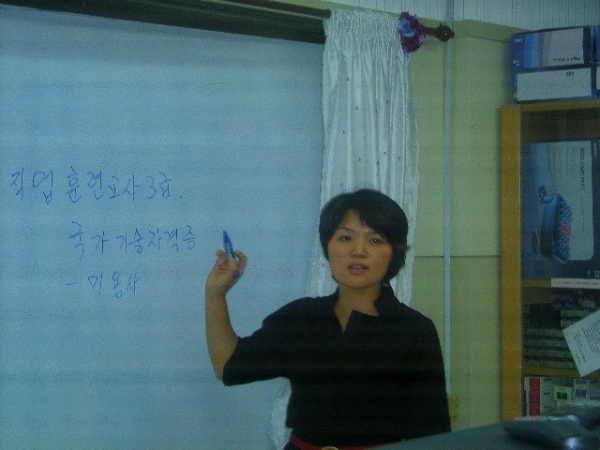 직업훈련교사 3급.
국가기술자격증
- 미용사